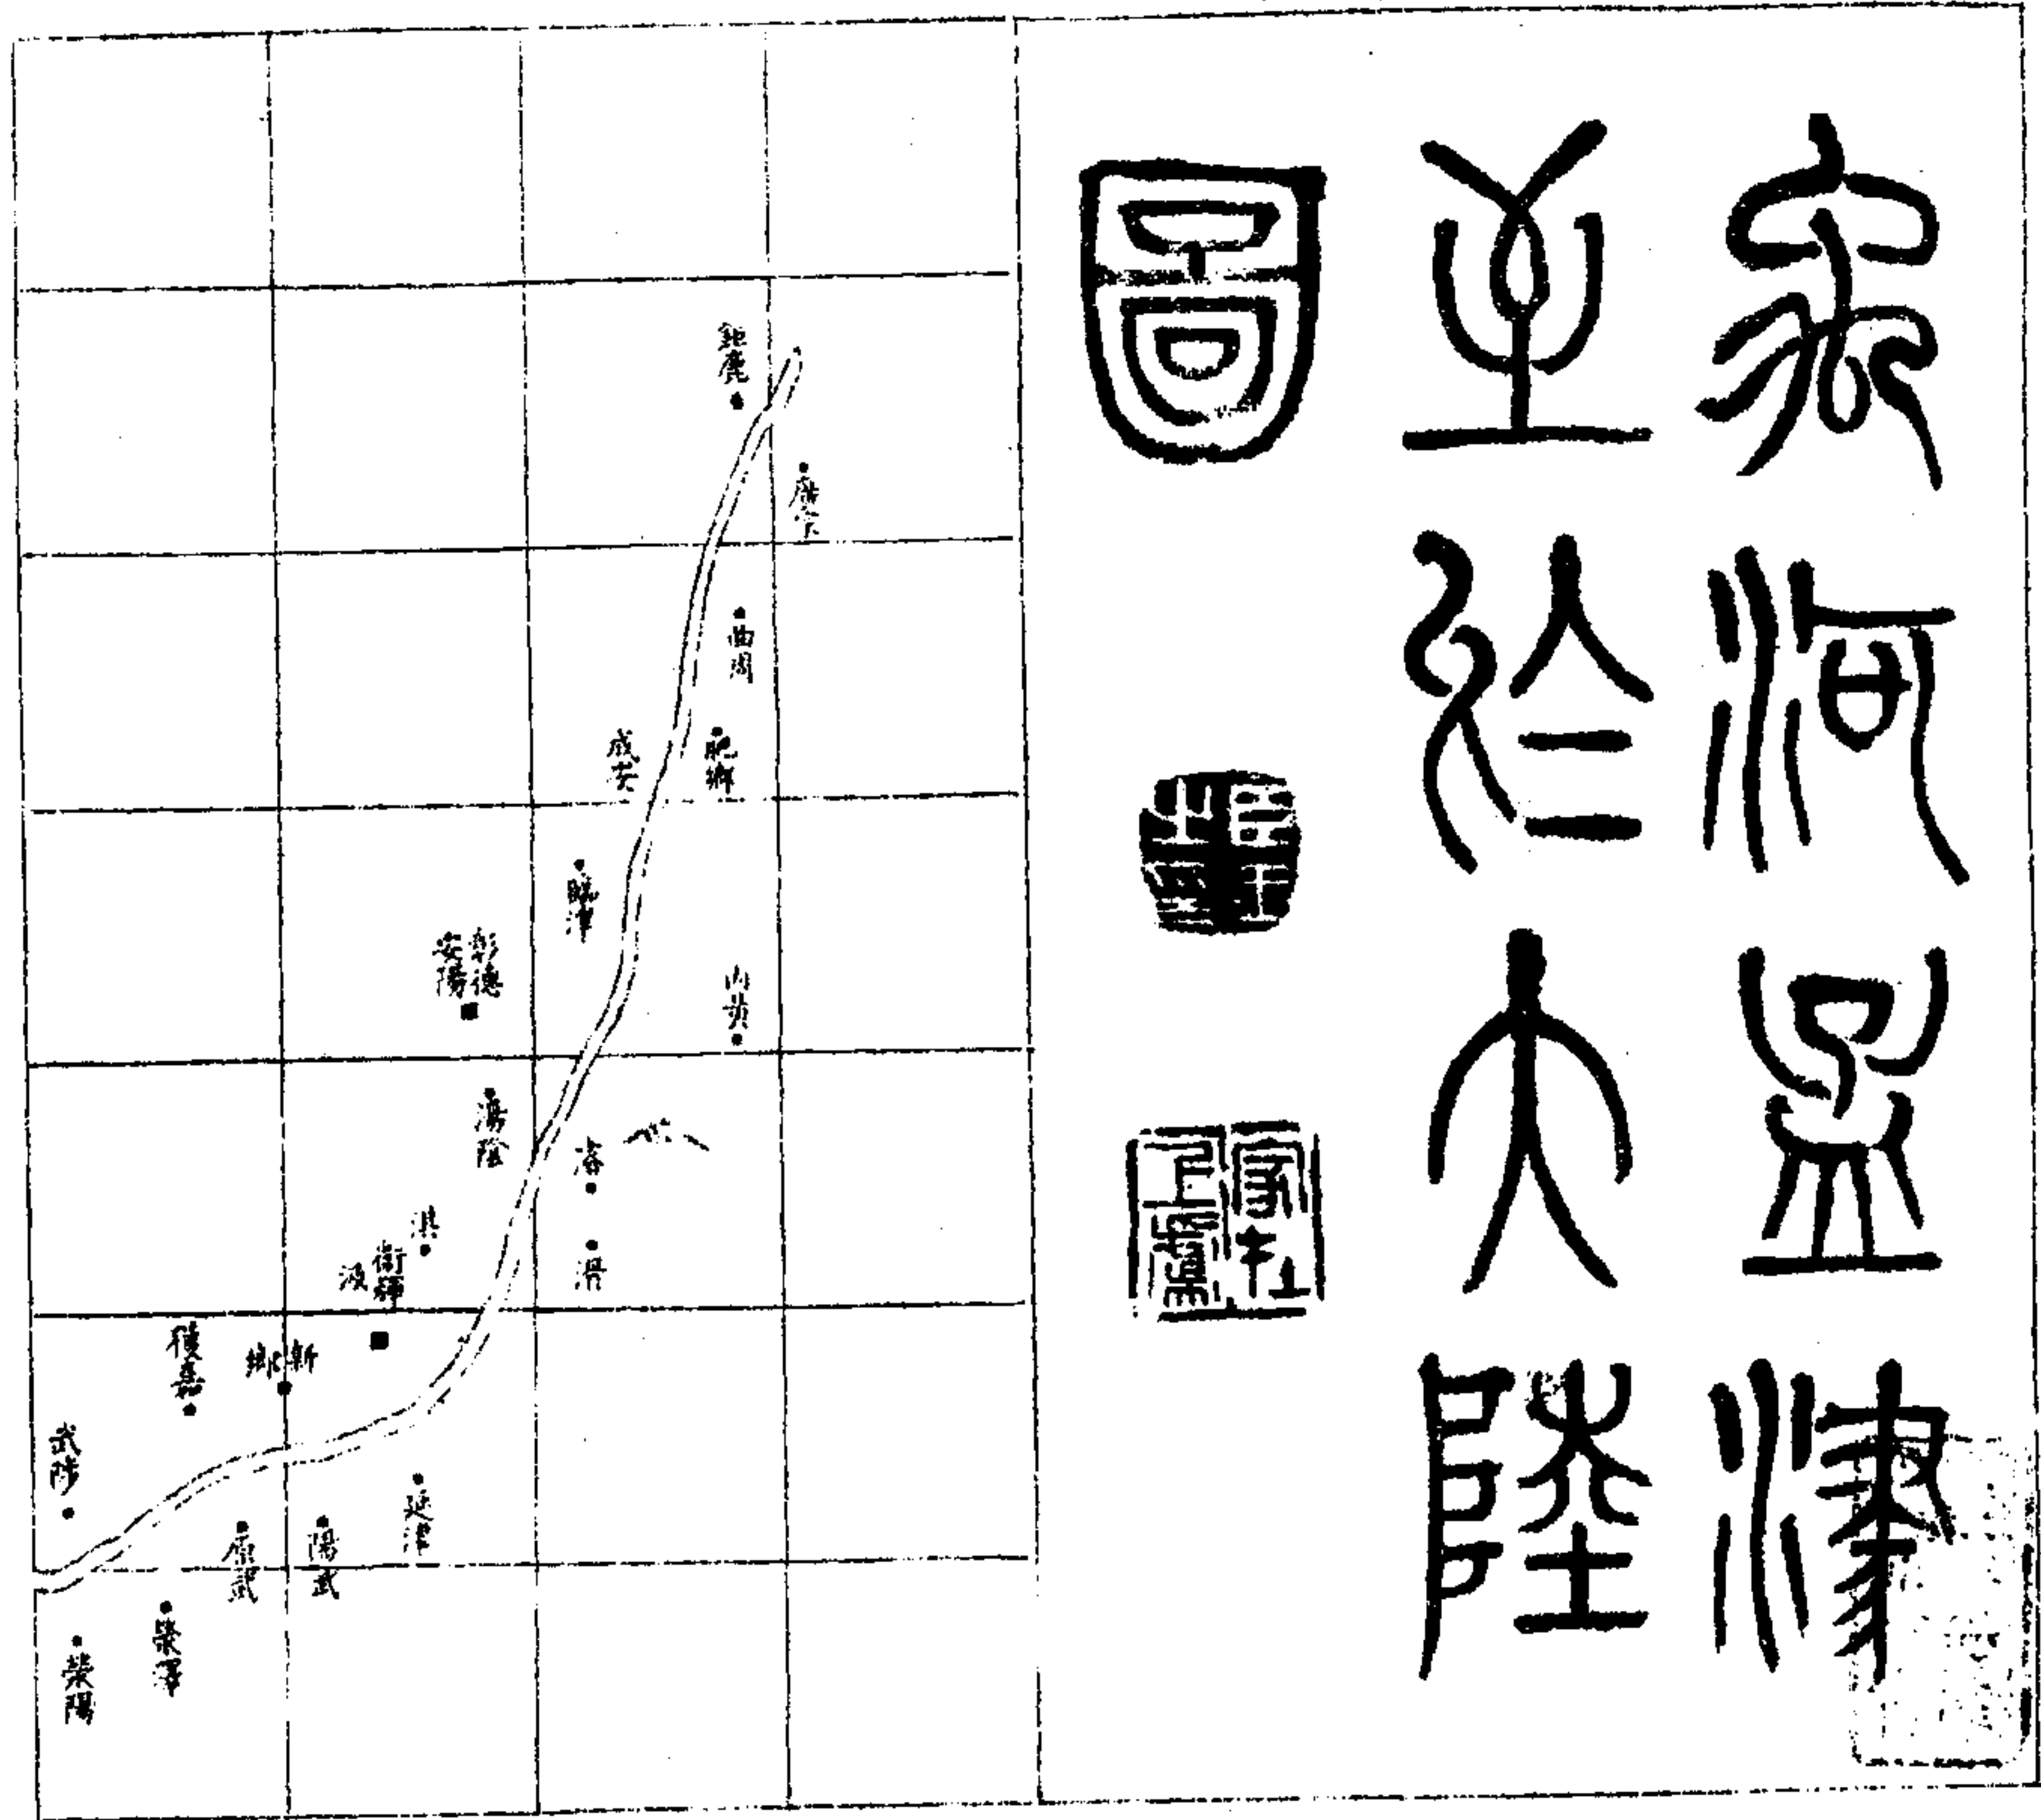 禹河孟津
至於大陸
圖
鉅鹿
廣宗
曲周
肥鄉
成安
臨漳
彰德
安陽
内黄
湯陰
濬
滑
淇
衛輝
汲
新鄉
獲嘉
武陟
延津
陽武
原武
滎澤
滎陽